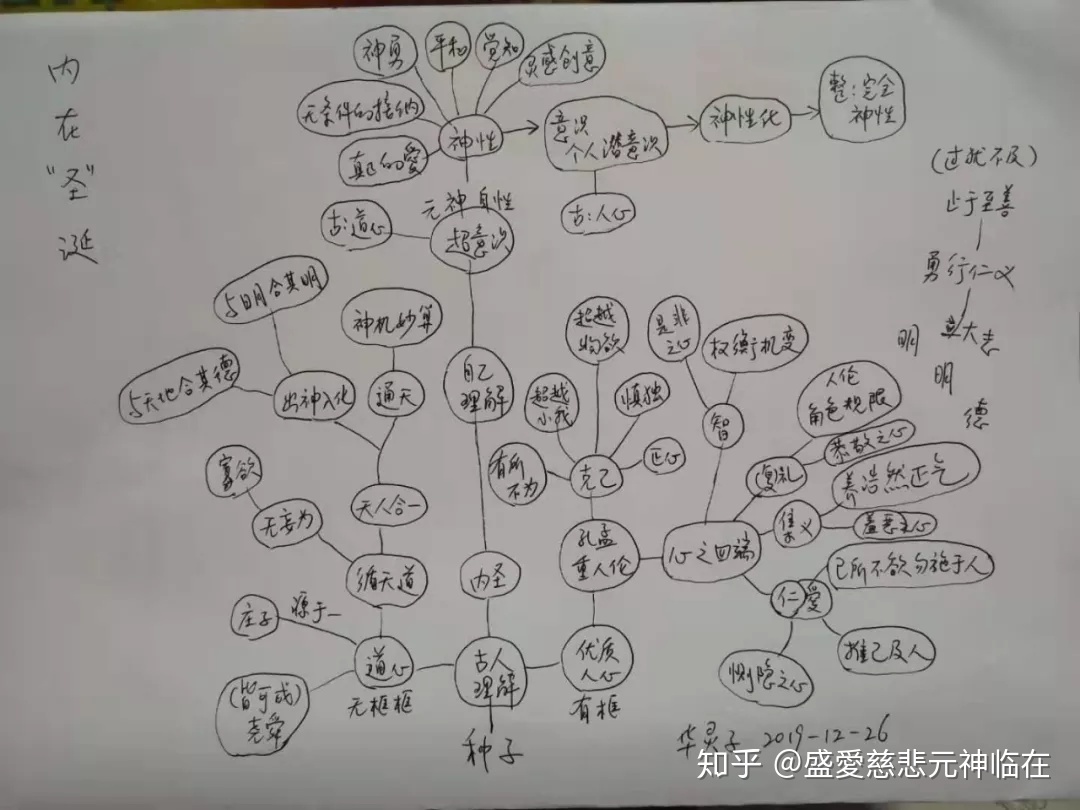 内
在
“圣”
诞
神勇
平和
觉知
灵感创意
无条件的接纳
真正的愛
神性
意识
个人潜意识
神性化
整:完全
神性
古:人心
元神自性
古:道心
超意识
(过犹不及)
止于至善
勇行仁义
立大志
明
明
德
与日月合其明
与天地合其德
出神入化
神机妙算
通天
天人合一
寡欲
无妄为
循天道
庄子
源于一
道心
无框框
(皆可成)
尧舜
自己
理解
内圣
古人
理解
种子
超越
物欲
超越
小我
慎独
正心
有所
不为
克己
孔孟
重人伦
优质
人心
有框
是非
之心
权衡机变
智
心之四端
人伦
角色规限
恭敬之心
复礼
养浩然正气
集义
羞恶之心
己所不欲勿施于人
仁愛
推己及人
恻隐之心
华灵子 2019-12-26
知乎 @盛愛慈悲元神临在